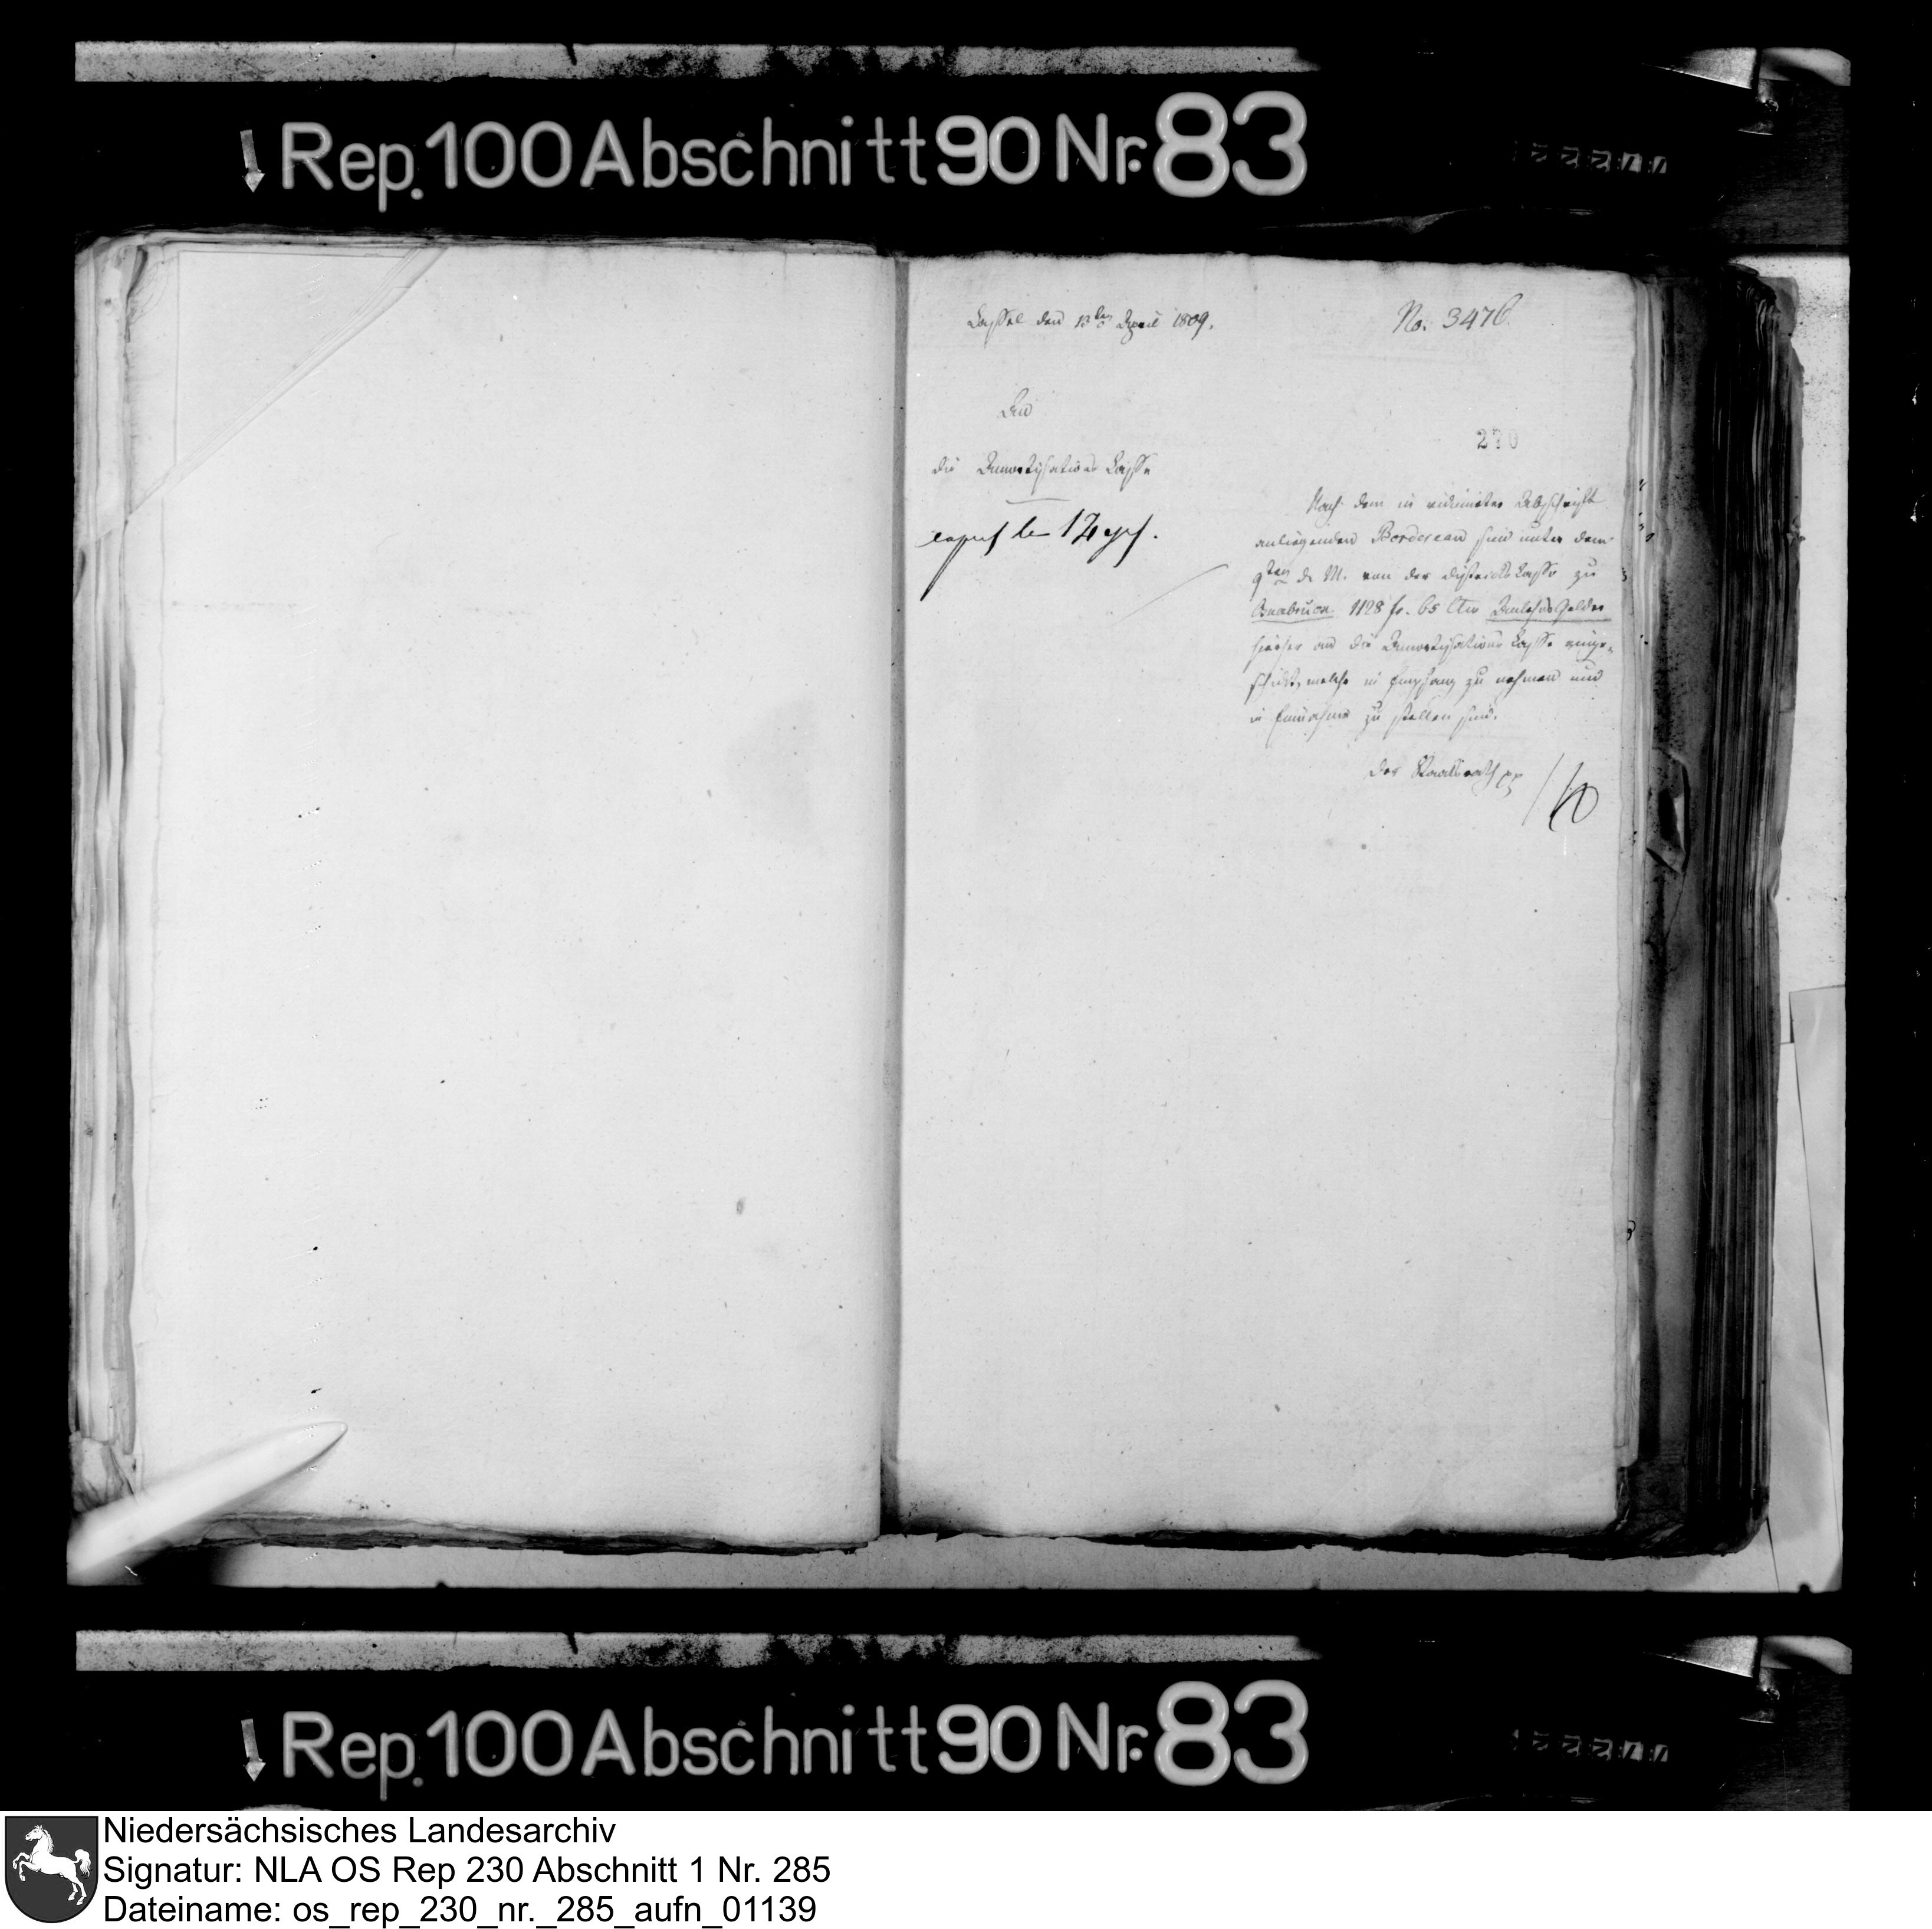 Rep. 100 Abschnitt 90 Nr. 83
Cassel den 13ten April 1809.
No. 3476
An
270
die Amortisations Casse
Nach dem in vidimirter Abschrift
anliegenden Bordereau sind unter dem
9ten d. M. von der Districts Casse zu
Osnabrück 1128 fr. 65 Ctm Anlehns Gelder
hierher an die Amortisations Casse einge-
schickt, welche in Empfang zu nehmen und
in Einnahme zu stellen sind.
Der Staatsrath
Rep. 100 Abschnitt 90 Nr. 83
Niedersächsisches Landesarchiv
Signatur: NLA OS Rep 230 Abschnitt 1 Nr. 285
Dateiname: os_rep_230_nr._285_aufn_01139